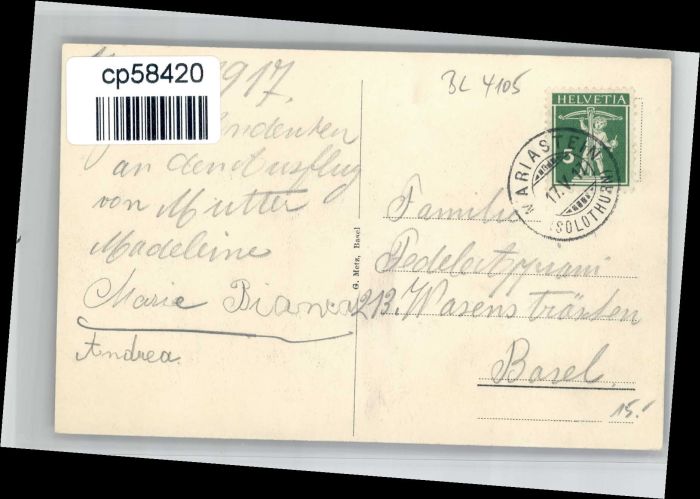 cp58420
1917.
Andenken
an den Ausflug
von Mutter
Madeleine
Marie Bianca
Andrea.
G. Metz, Basel
BL 4105
HELVETIA
5
MARIASTEIN
17.V.17
(SOLOTHURN)
Familie
213. Wasensträssen
Basel.
15.-